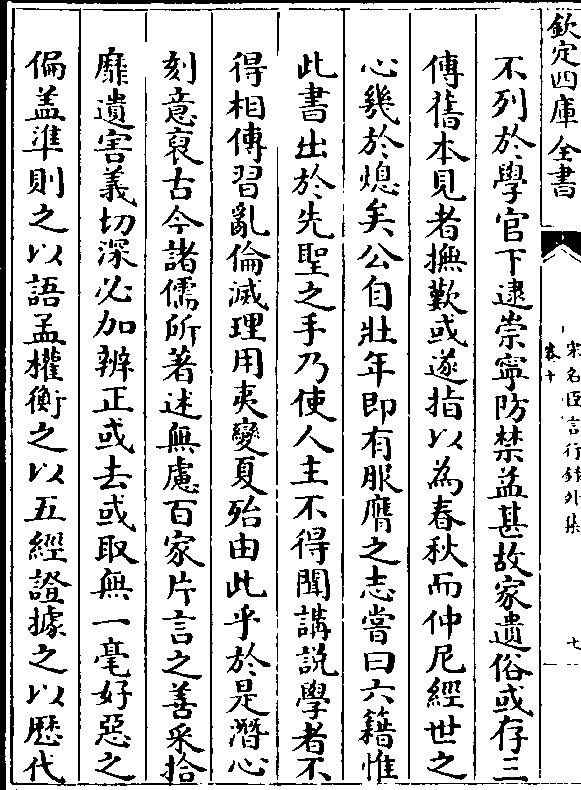 欽定四庫全書
宋名臣言行錄外集
卷十
七
不列於學官下逮崇寧防禁益甚故家遺俗或存三
傳舊本見者撫歎或遂指以為春秋而仲尼經世之
心幾於熄矣公自壯年即有服膺之志嘗曰六籍惟
此書出於先聖之手乃使人主不得聞講説學者不
得相傳習亂倫滅理用夷變夏殆由此乎於是潛心
刻意裒古今諸儒所著述無慮百家片言之善采拾
靡遺害義切深必加辨正或去或取無一毫好惡之
偏盖準則之以語孟權衡之以五經證據之以歴代